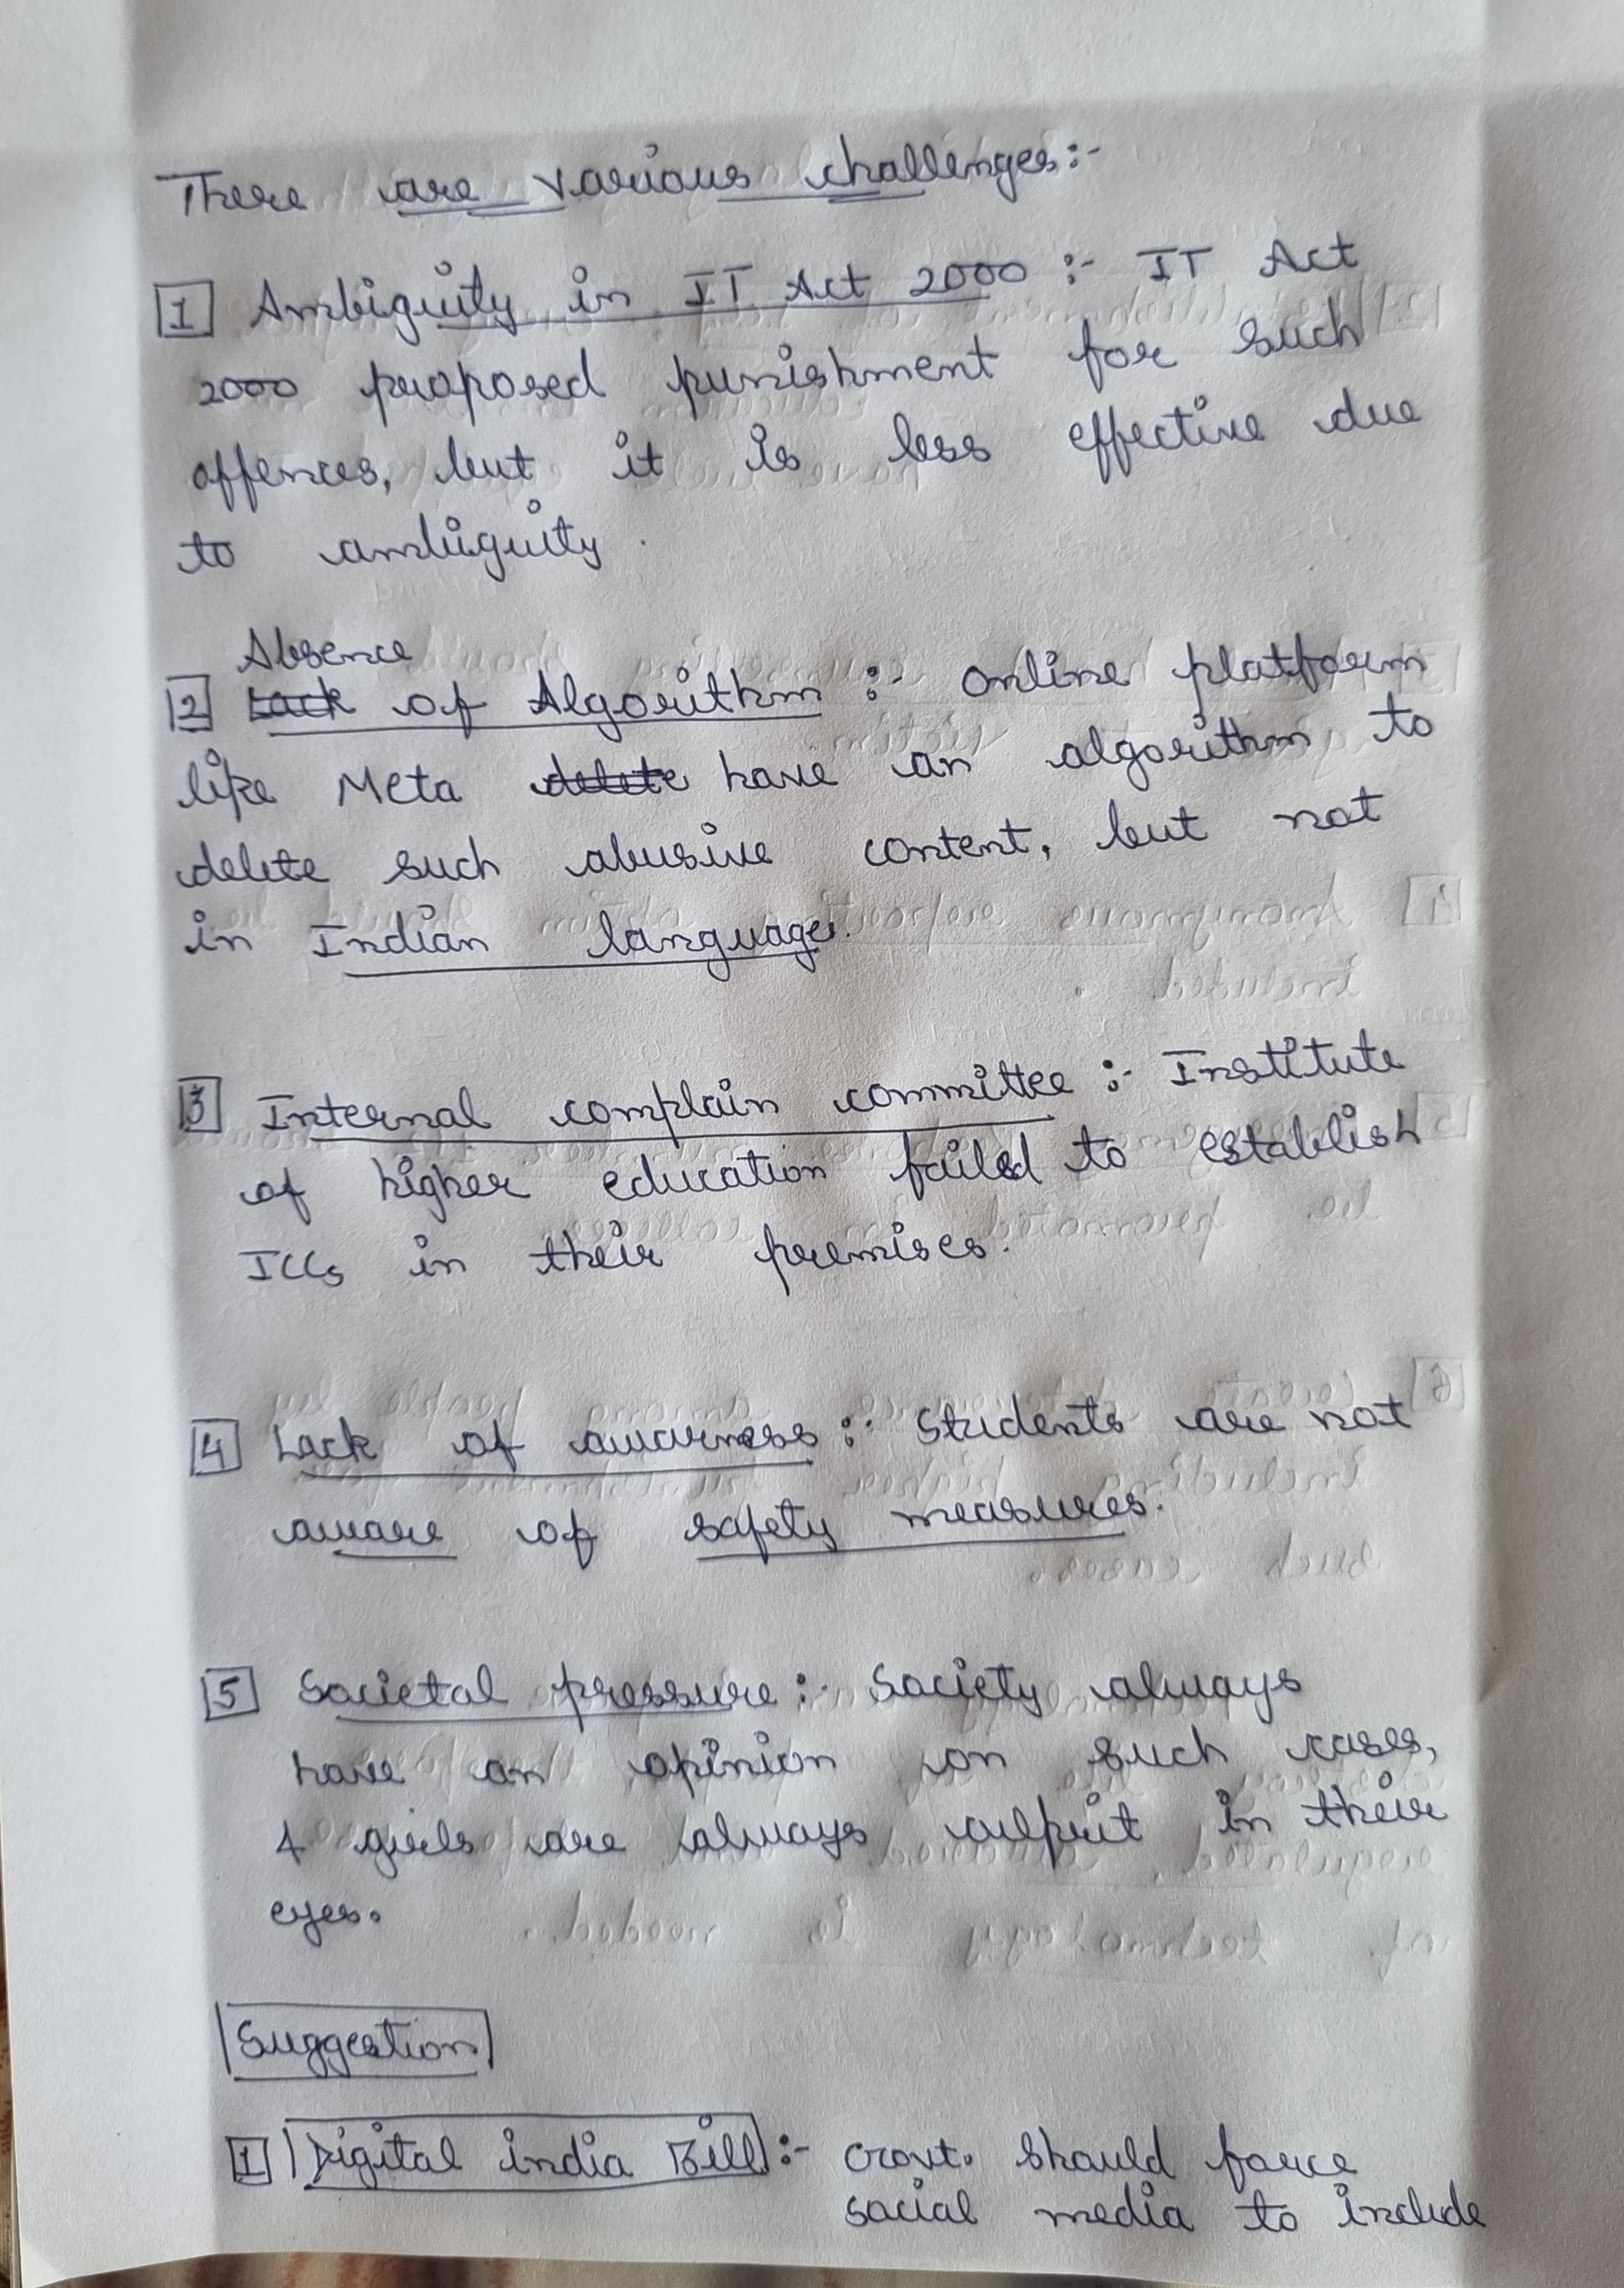 There are various challenges:-
1 Ambiguity in IT Act 2000 :- IT Act
2000 proposed punishment for such
offences, but it is less effective due
to ambiguity.
Absence
2 Lack of Algorithm :- Online platform
like Meta delete have an algorithm to
delete such abusive content, but not
in Indian language.
3 Internal complain committee :- Institute
of higher education failed to establish
ICCs in their premises.
4 Lack of awarness :- Students are not
aware of safety measures.
5 Societal pressure :- Society always
have an opinion on such cases,
& girls are always culprit in their
eyes.
Suggestion
1 Digital india Bill :- Govt. should force
social media to include